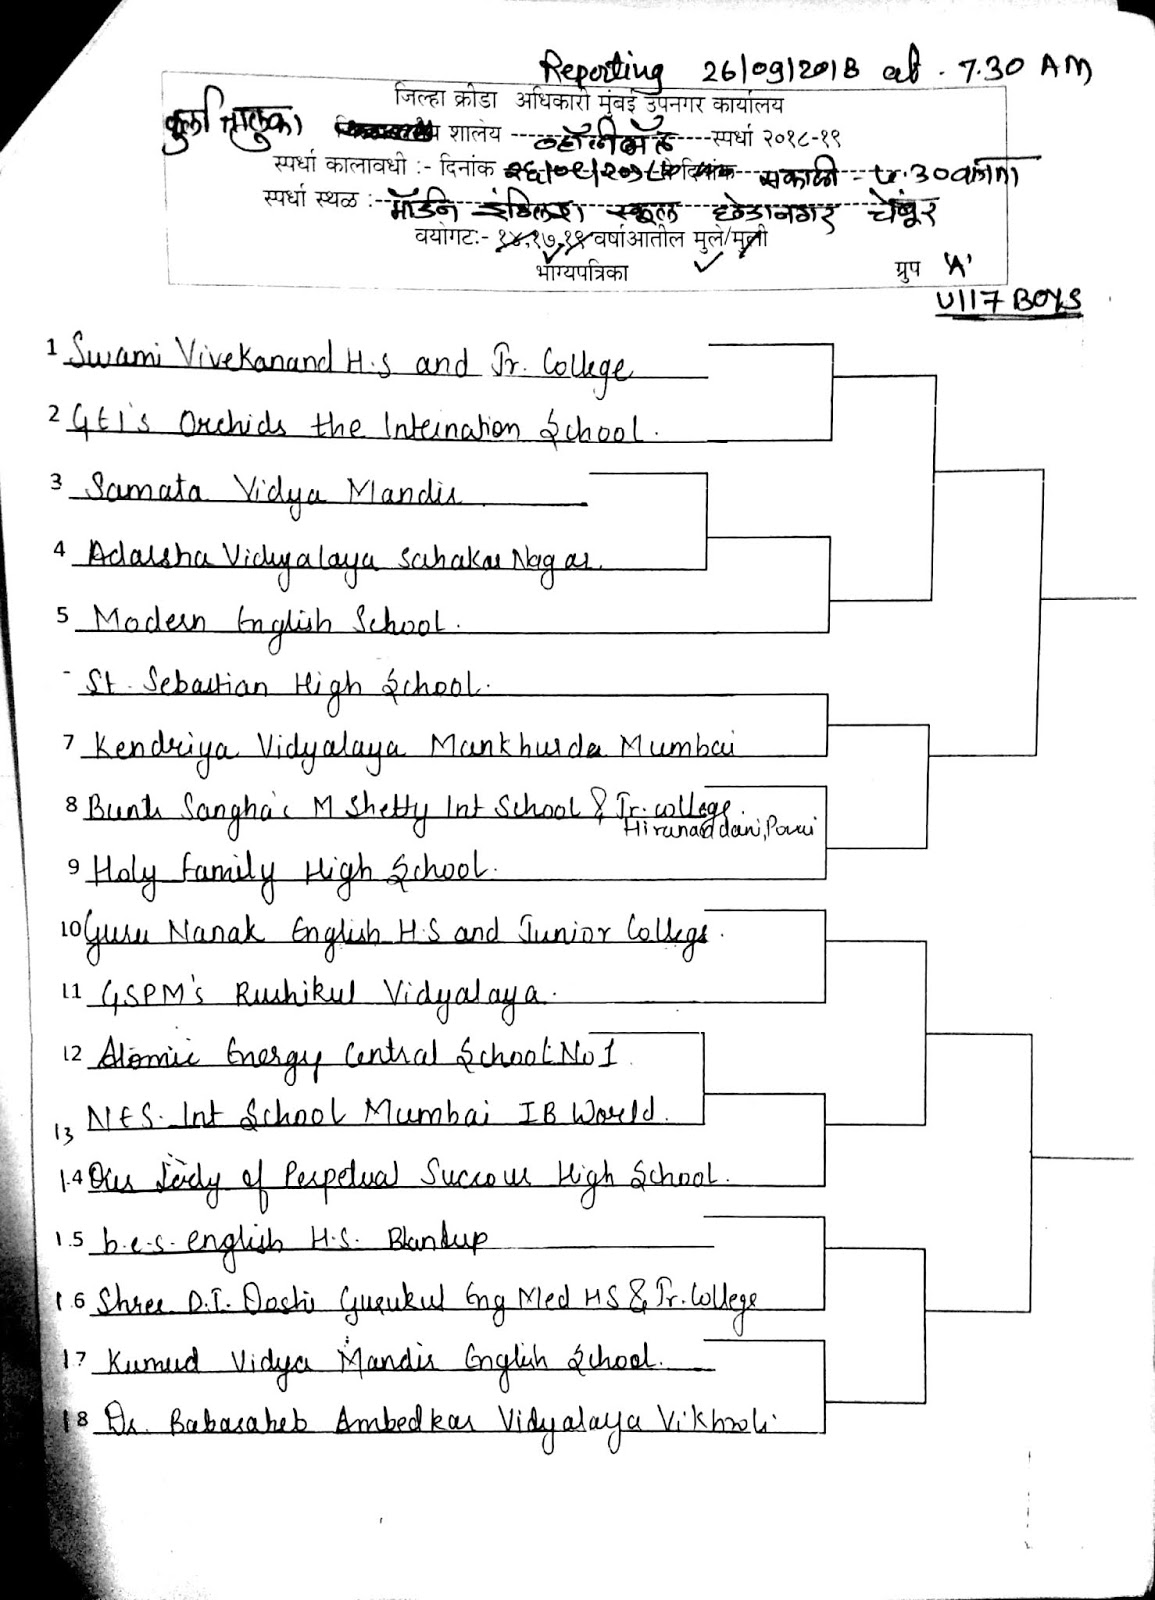 Reporting 26/09/2018 at . 7.30 AM
जिल्हा क्रीडा अधिकारी मुंबई उपनगर कार्यालय
कुर्ला तालुका शालेय व्हॉलीबॉल स्पर्धा २०१८-१९
स्पर्धा कालावधी :- दिनांक २६/०९/२०१८ सकाळी - ७.३० वाजता
स्पर्धा स्थळ :- मॉर्डन इंग्लिश स्कूल छेडानगर चेंबूर
वयोगटः- १४,१७,१९ वर्षाआतील मुले/मुली
भाग्यपत्रिका ग्रुप 'A'
U/17 BOYS
1 Swami Vivekanand H.S and Jr. College
2 GEI's Orchids the Inteination School.
3 Samata Vidya Mandir
4 Adarsha Vidyalaya Sahakar Nagar.
5 Modern English School.
St. Sebastian High School.
7 Kendriya Vidyalaya Mankhurda Mumbai
8 Bunts Sangha's M Shetty Int School & Jr. college.
Hiranaddani, Powai
9 Holy Family High School.
10 Guru Nanak English H.S and Junior College.
11 GSPM's Rushikul Vidyalaya.
12 Atomic Energy Central School No 1.
13 NES. Int School Mumbai IB World.
14 Our Lady of Perpetual Succour High School.
15 b.e.s. english H.S. Bhandup
16 Shree D.J. Doshi Gurukul Eng Med HS & Jr. College
17 Kumud Vidya Mandir English School.
18 Dr. Babasaheb Ambedkar Vidyalaya Vikhroli